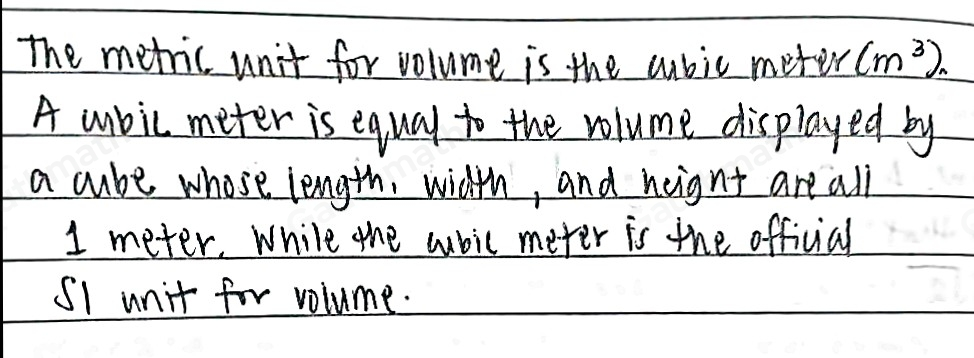 The metric unit for volume is the cubic meter (m³).
A cubic meter is equal to the volume displayed by
a cube whose length, width, and height are all
1 meter. While the cubic meter is the official
SI unit for volume.